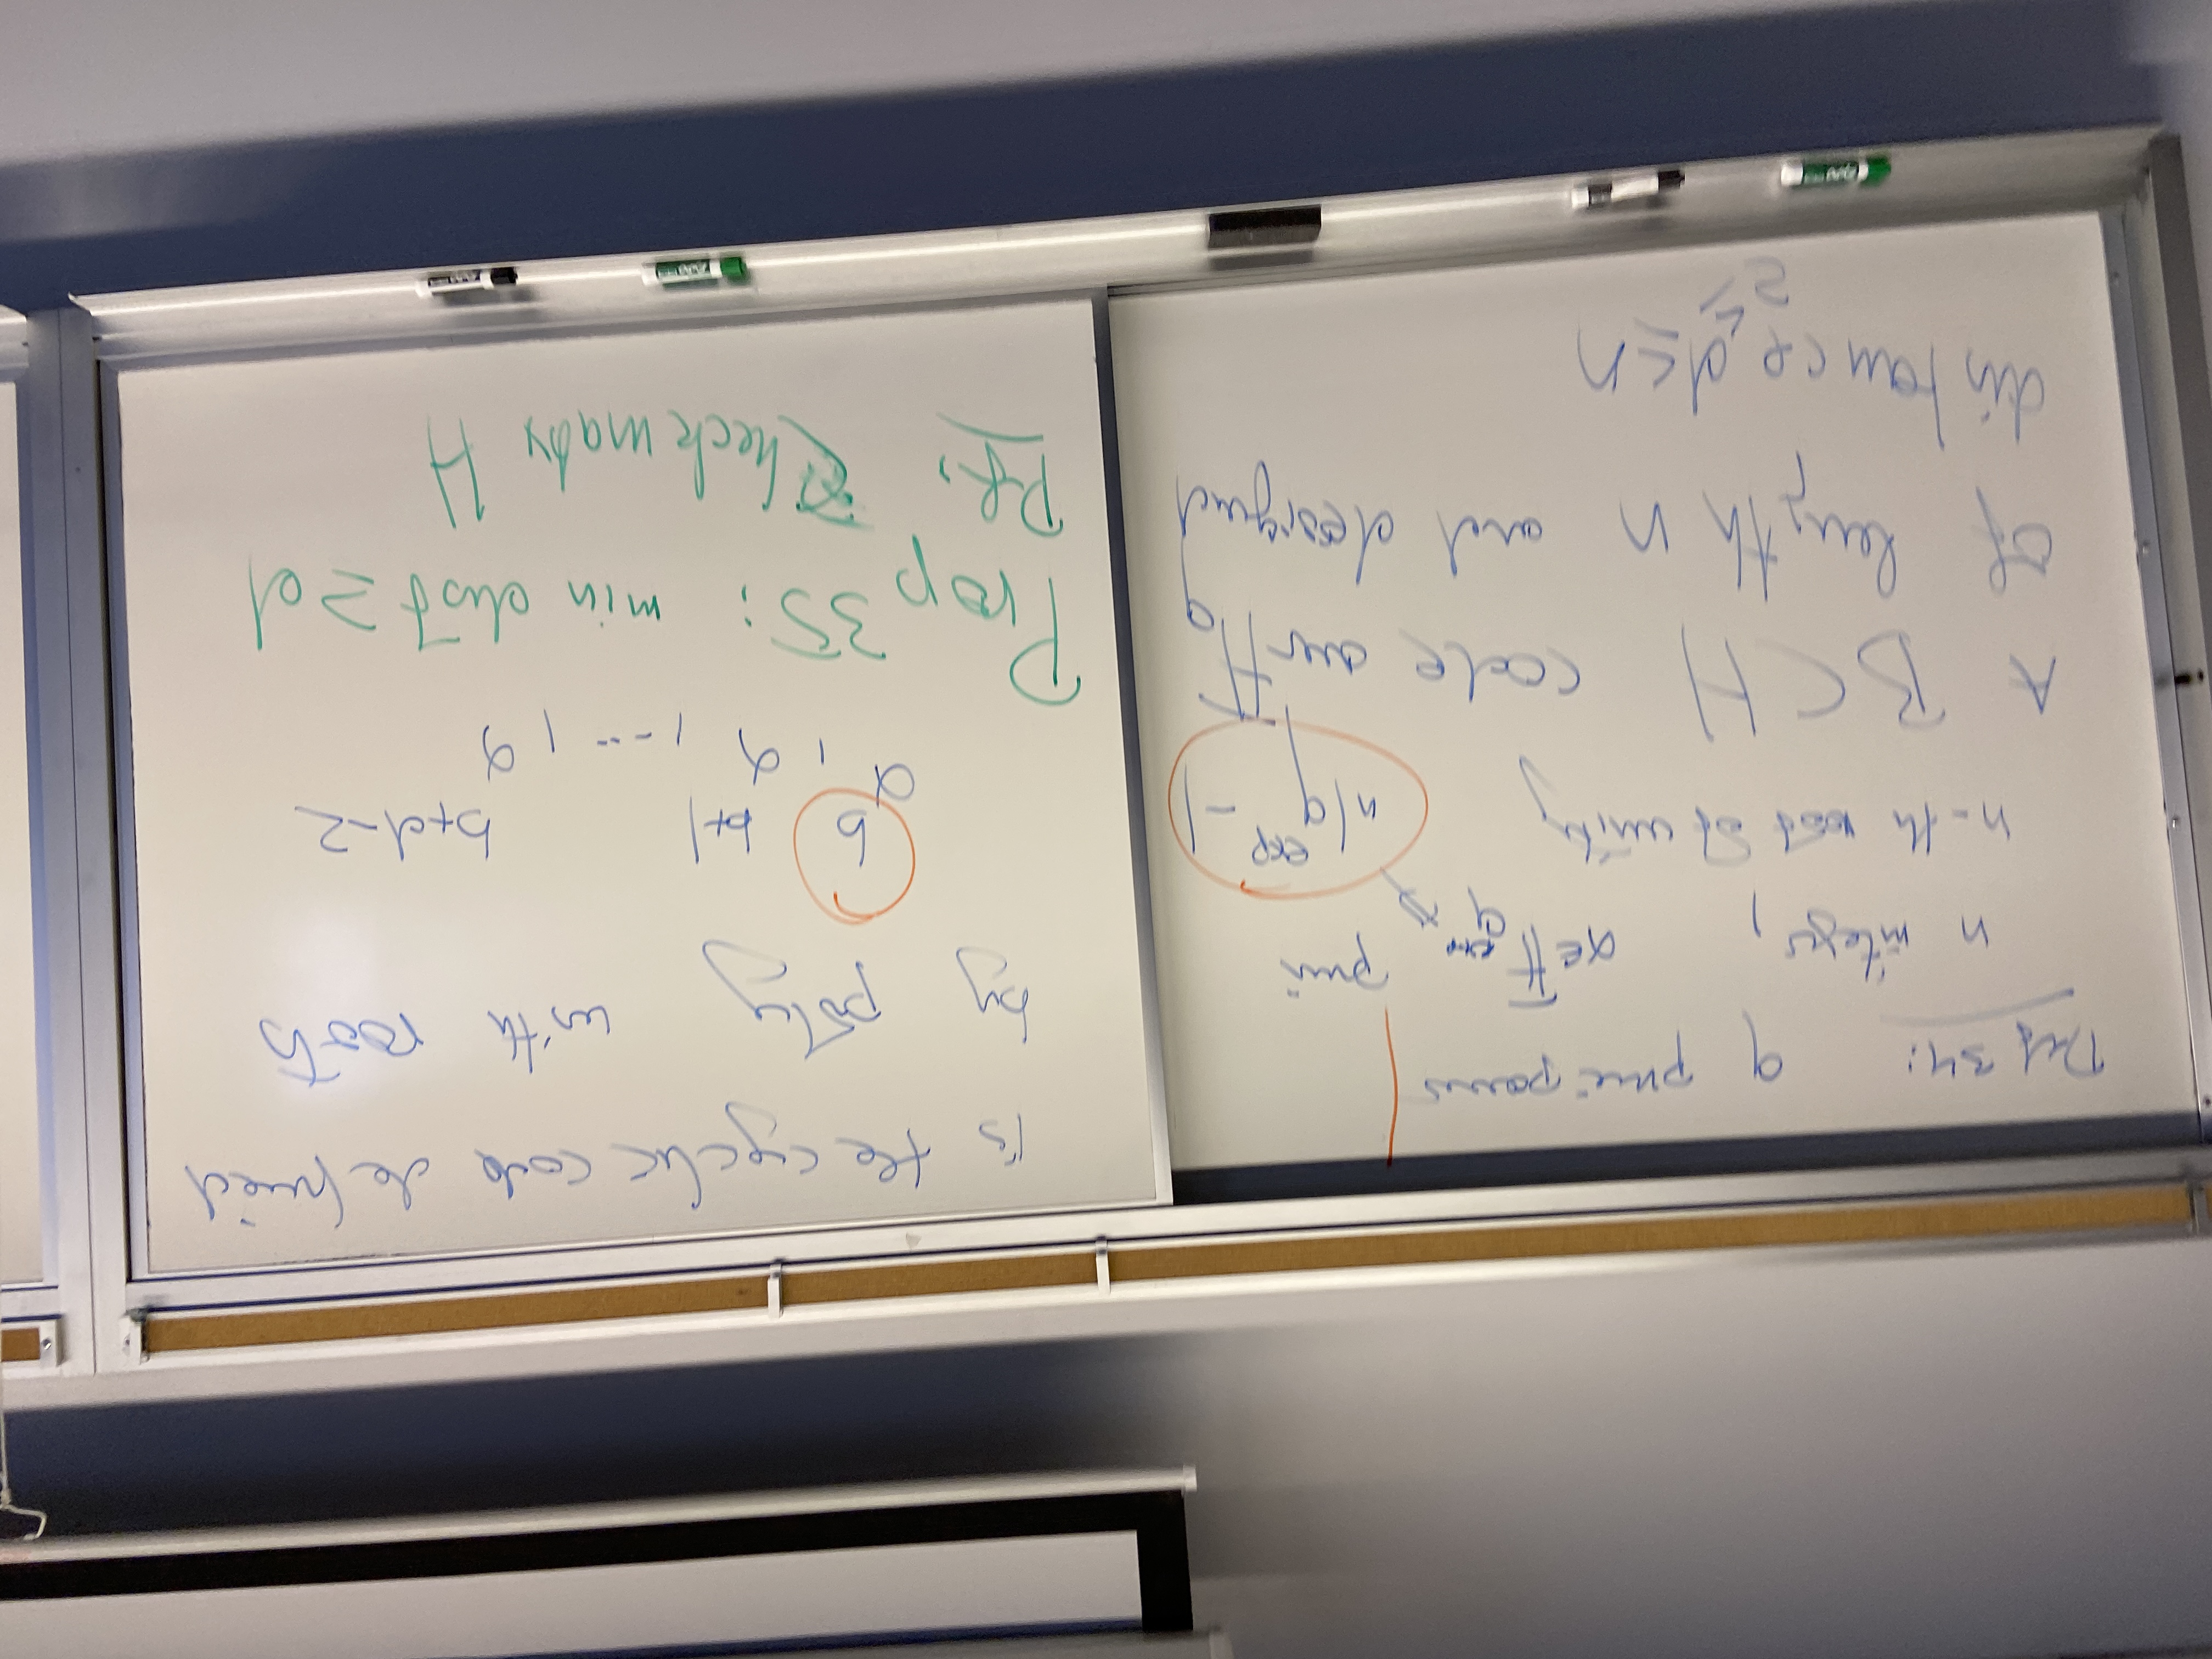 Def 34: q prime power
n integer, α ∈ F_q^exp prim
n-th root of unity n | q^exp - 1
A BCH code over F_q
of length n and designed
distance d ≤ n
2 ≤
is the cyclic code defined
by poly with roots
α^b, α^b+1, ..., α^b+d-2
Prop 35: min dist ≥ d
Pf. Check matrix H